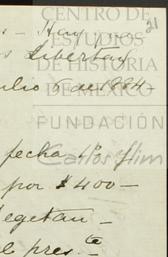 CENTRO DE
ESTUDIOS
DE HISTORIA
DE MÉXICO
FUNDACIÓN
Carlos Slim
21
- Hay
Libertad
Julio 6 de 1884 -
fecha 1º
por $400 -
vegetan -
pres.te